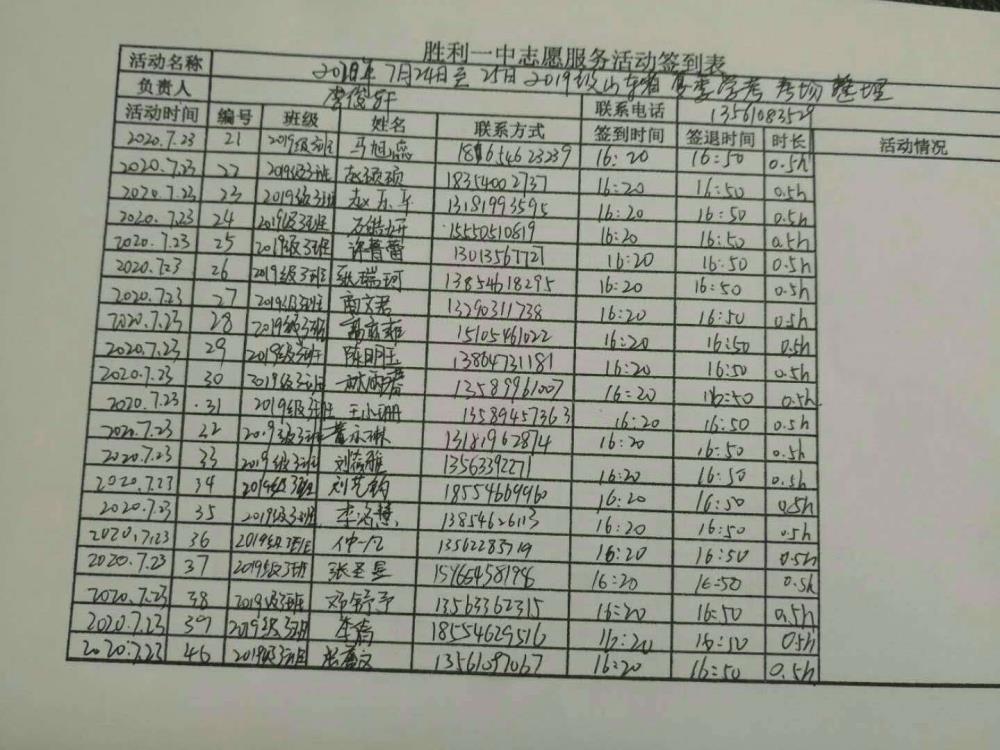 胜利一中志愿服务活动签到表
活动名称 7月24日至25日2019级山东省夏季学考考场整理
负责人 李俊轩 联系电话 13561083529
活动时间 编号 班级 姓名 联系方式 签到时间 签退时间 时长 活动情况
2020.7.23 21 2019级3班 马旭蕊 18654623239 16:20 16:50 0.5h
2020.7.23 22 2019级3班 18354002737 16:20 16:50 0.5h
2020.7.23 23 2019级3班 赵乐乐 13181993595 16:20 16:50 0.5h
2020.7.23 24 2019级3班 15550510819 16:20 16:50 0.5h
2020.7.23 25 2019级3班 许营蕾 13013567721 16:20 16:50 0.5h
2020.7.23 26 2019级3班 张瑞珂 13854618295 16:20 16:50 0.5h
2020.7.23 27 2019级3班 商文君 13290311738 16:20 16:50 0.5h
2020.7.23 28 2019级3班 15105461022 16:20 16:50 0.5h
2020.7.23 29 2019级3班 陈明玉 13864731181 16:20 16:50 0.5h
2020.7.23 30 2019级3班 13589961007 16:20 16:50 0.5h
2020.7.23 31 2019级3班 王小珊 13589457363 16:20 16:50 0.5h
2020.7.23 32 2019级3班 董永琳 13181962874 16:20 16:50 0.5h
2020.7.23 33 2019级3班 刘筱雅 13563392271 16:20 16:50 0.5h
2020.7.23 34 2019级3班 刘艺钧 18554669960 16:20 16:50 0.5h
2020.7.23 35 2019级3班 李洺慧 13854626113 16:20 16:50 0.5h
2020.7.23 36 2019级3班 仲一凡 13562285719 16:20 16:50 0.5h
2020.7.23 37 2019级3班 张圣昱 15965458198 16:20 16:50 0.5h
2020.7.23 38 2019级3班 邓舒予 13563362315 16:20 16:50 0.5h
2020.7.23 39 2019级3班 18554629516 16:20 16:50 0.5h
2020.7.23 40 2019级3班 张嘉文 13561097067 16:20 16:50 0.5h